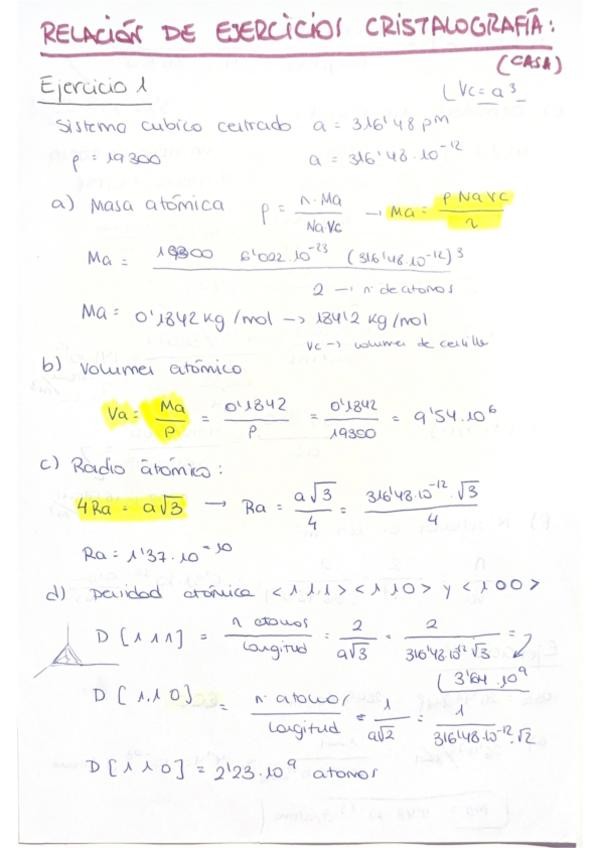 RELACIÓN DE EJERCICIOS CRISTALOGRAFÍA:
(CASA)
Ejercicio 1
Vc = a³
Sistema cubico centrado a = 316'48 pm
ρ = 19300 a = 316'48·10⁻¹²
a) Masa atómica ρ = n·Ma / NaVc → Ma = ρ Na Vc / n
Ma = 19300 6'022·10⁻²³ (316'48·10⁻¹²)³ / 2 → nº de atomos
Ma = 0'1842 kg/mol → 184'2 kg/mol
Vc → volumen de celdilla
b) Volumen atómico
Va = Ma / ρ = 0'1842 / ρ = 0'1842 / 19300 = 9'54·10⁶
c) Radio atómico:
4Ra = a√3 → Ra = a√3 / 4 = 316'48·10⁻¹²·√3 / 4
Ra = 1'37·10⁻¹⁰
d) Densidad atómica <111> <110> y <100>
D [111] = n atomos / Longitud = 2 / a√3 = 2 / 316'48·10⁻¹²√3 =
3'64·10⁹
D [1,10] = nº atomos / Longitud = 1 / a√2 = 1 / 316'48·10⁻¹²·√2
D [110] = 2'23·10⁹ atomos